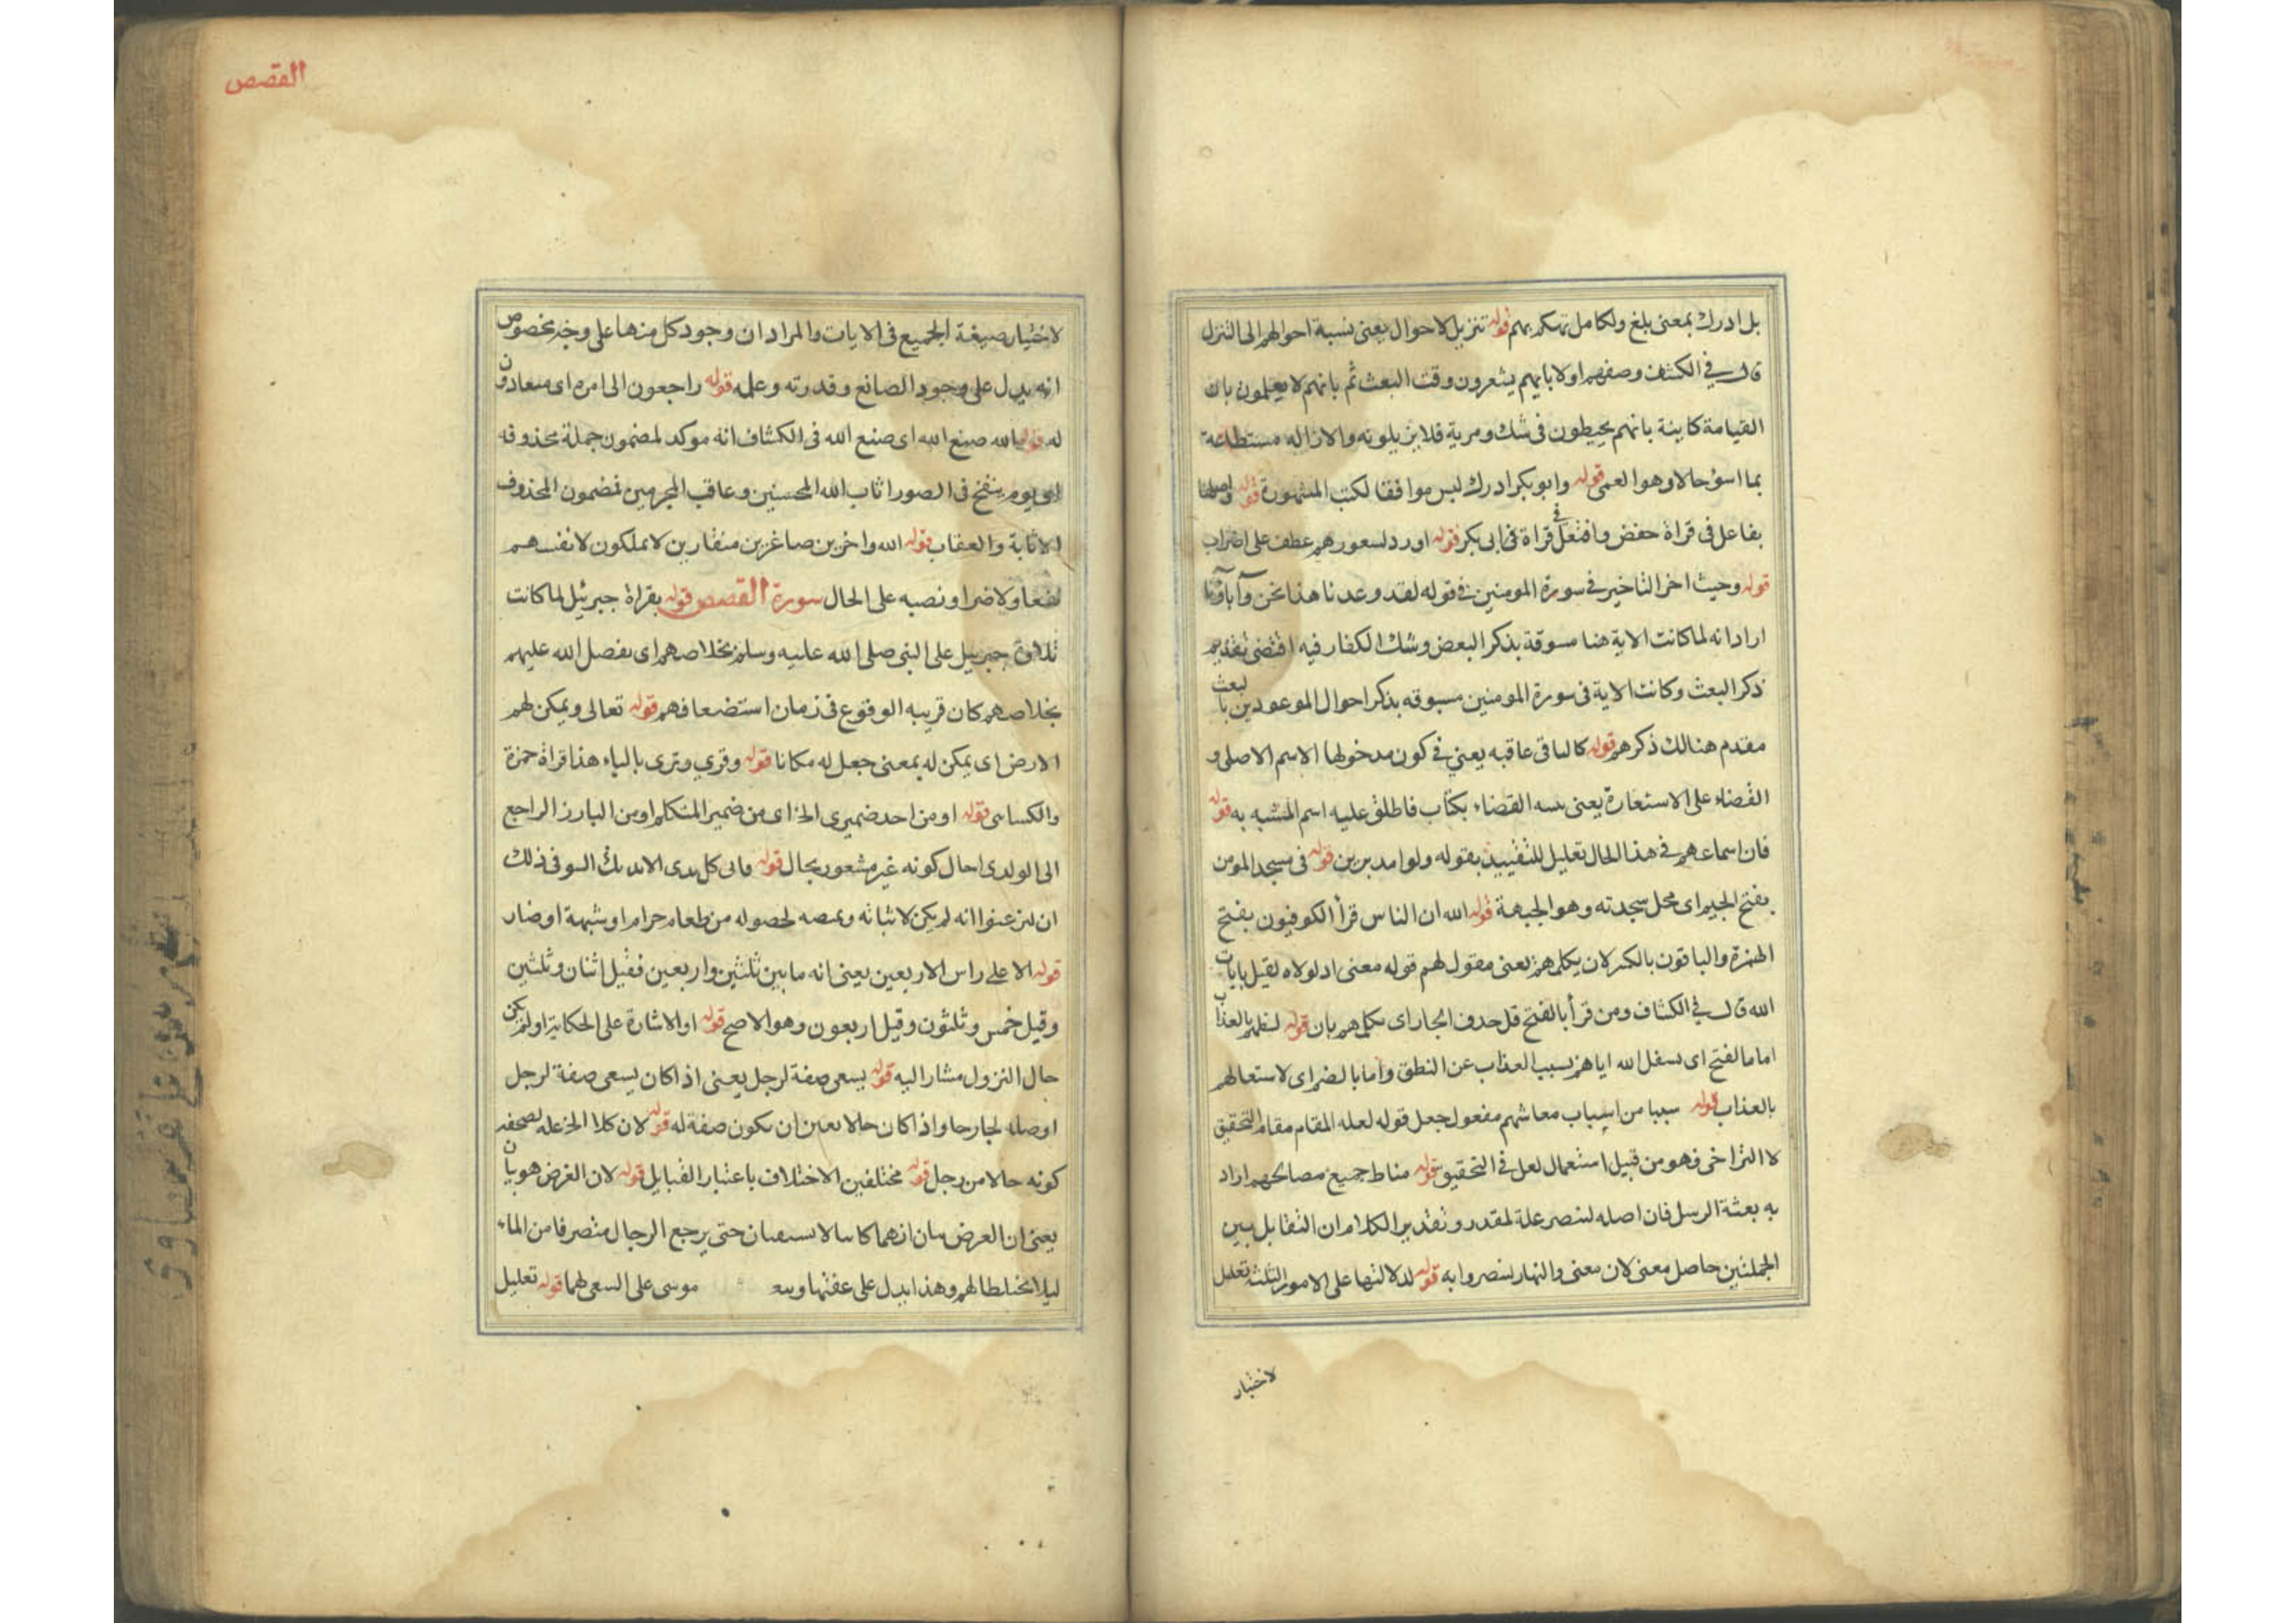 بل ادرك بمعنى بلغ وتكامل تهكم بهم قوله تنزيل لاحوال يعنى نسبة احوالهم الى التنزل
قال في الكشف وصفهم اولا بانهم يشعرون وقت البعث ثم بانهم لا يعلمون بان
القيامة كاينة بانهم يحيطون فى شك ومرية فلا يزيلونه والازاله مستطاعة
بما اسؤ حالا وهو العمى قوله وابو بكر ادرك ليس موافقا لكتب المشهورة قوله واصلها
بفاعل فى قراة حفض وافتعل فى قراة فى ابى بكر قوله اورد لسعورهم عطف على اضراب
قوله وحيث اخر التاخير في سورة المومنين في قوله لقد وعدنا هذا نحن وآباؤنا
اراد انه لما كانت الاية هنا مسوقة بذكر البعض وشك الكفار فيه اقتضى تقديم
ذكر البعث وكانت الاية فى سورة المومنين مسبوقه بذكر احوال الموعودين بالبعث
مقدم هنالك ذكرهم قوله كالباقى عاقبه يعني في كون مدخولها الاسم الاصلى و
القضاء على الاستعارة يعنى سبه القضاء بكتاب فاطلق عليه اسم المشبه به قوله
فان اسماعهم في هذا الحال تعليل للتقييد بقوله ولوا مدبرين قوله فى مسجد المومن
بفتح الجيم اى محل سجدته وهو الجبهة قوله الله ان الناس قرأ الكوفيون بفتح
الهمزة والباقون بالكسر لان يكلمهم يعنى مقول لهم قوله معنى اد لولاه لقيل بايات
الله قال في الكشاف ومن قرأ بالفتح قل حدف الجار اى بكلمهم بان قوله بالعذاب
اما بالفتح اى الله اياهم بسبب العذاب عن النطق واما بالضم اى لاستعمالهم
بالعذاب قوله سببا من اسباب معاشهم مفعول جعل قوله لعله المقام مقام التحقيق
لا التراخى فهو من قبيل استعمال لعل في التحقيق قوله مناط جميع مصالحهم اراد
به بعثة الرسل فان اصله لتنصر علة لمقدر وتقدير الكلام ان التقابل بين
الجملتين حاصل معنى لان معنى والنهار لتبصروا به قوله لدلالتها على الامور الثلثة تعليل
لاختيار
القصص
لاختيار صيغة الجميع فى الايات والمراد ان وجود كل منها على وجه مخصوص
انه يدل على وجود الصانع وقدرته وعلمه قوله راجعون الى امره اى منقادون
له قوله بالله صنع الله اى صنع الله فى الكشاف انه موكد لمضمون جملة محذوفه
اى يوم ينفخ فى الصور اثاب الله المحسنين وعاقب المجرمين فمضمون المحذوف
الاثابة والعقاب قوله الله واخرين صاغرين منقارين لا يملكون لانفسهم
نفعا ولا ضرا ونصبه على الحال سورة القصص قوله بقراة جبرئيل لما كانت
تلاوة جبرييل على النبى صلى الله عليه وسلم بخلاصهم اى بفضل الله عليهم
بخلاصهم كان قريبه الوقوع فى زمان استضعافهم قوله تعالى ويمكن لهم
الارض اى يمكن له بمعنى جعل له مكانا قوله وقري ويرى بالياء هذا قراة حمزة
والكسائى قوله او من احد ضميرى الخ اى من ضمير المتكلم او من البارز الراجع
الى الولد اى حال كونه غير مشعور بحال قوله الى كل ثدى فى ذلك
ان انه لم يكن لحصوله من طعام حرام او شبهة او ضار
قوله الا على راس الاربعين يعنى انه ما بين ثلثين واربعين فقيل اثنان وثلثين
وقيل خمس وثلثون وقيل اربعون وهو الاصح قوله او الاشارة على الحكاية اولم يكن
حال النزول مشارا اليه قوله يسعى صفة لرجل يعنى اذا كان يسعى صفة لرجل
اوصله لجار جا واذا كان حالا تعين ان يكون صفة له قوله لان كلا الخ عله لصحة
كونه حالا من رجل قوله مختلفين الاختلاف باعتبار القبايل قوله لان الغرض هو بيان
يعنى ان العرض بيان انهما كانتا لا تسقيان حتى يرجع الرجال منصرفا من الماء
ليلا يختلطا لهم وهذا يدل على عفتها موسى على السعى لهما قوله تعليل